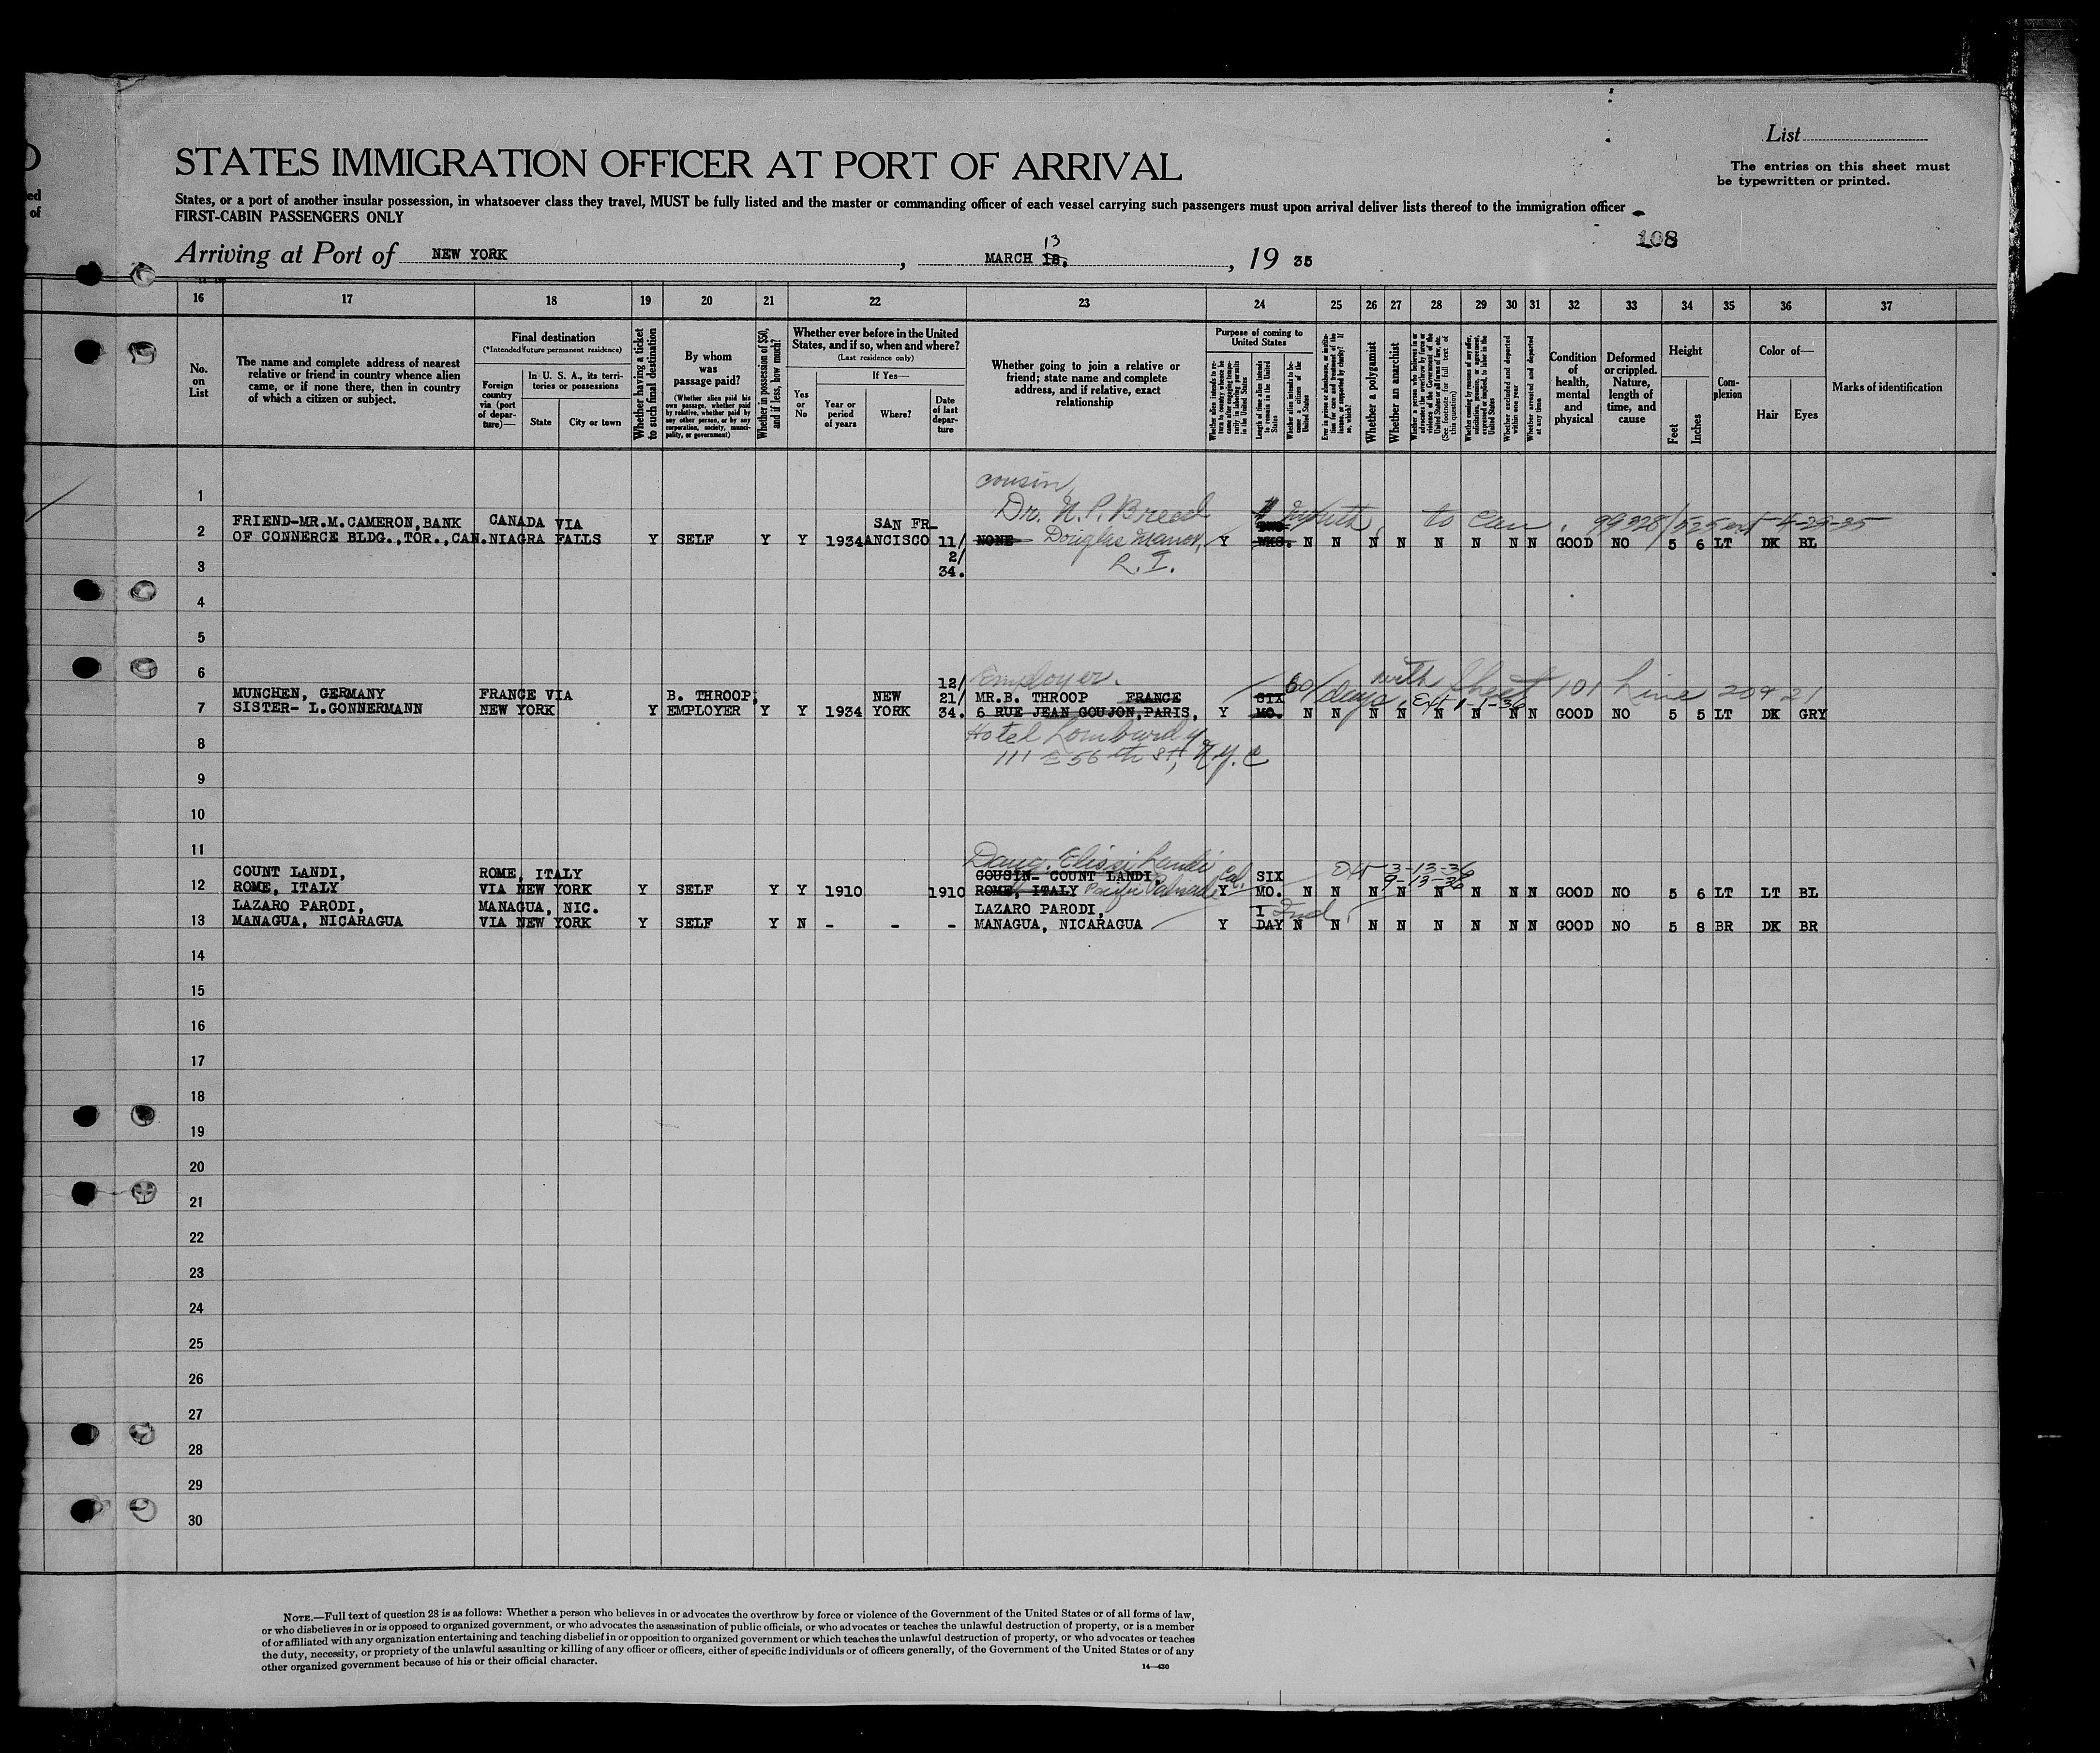 List
STATES IMMIGRATION OFFICER AT PORT OF ARRIVAL
The entries on this sheet must
be typewritten or printed.
States, or a port of another insular possession, in whatsoever class they travel, MUST be fully listed and the master or commanding officer of each vessel carrying such passengers must upon arrival deliver lists thereof to the immigration officer
FIRST-CABIN PASSENGERS ONLY
108
13
Arriving at Port of NEW YORK, MARCH 18., 19 35
16 17 18 19 20 21 22 23 24 25 26 27 28 29 30 31 32 33 34 35 36 37
No. on List
The name and complete address of nearest
relative or friend in country whence alien
came, or if none there, then in country
of which a citizen or subject.
Final destination
(*Intended future permanent residence)
Foreign
country
via (port
of depar-
ture)—
In U. S. A., its terri-
tories or possessions
State
City or town
Whether having a ticket
to such final destination
By whom
was
passage paid?
(Whether alien paid his
own passage, whether paid
by relative, whether paid by
any other person, or by any
corporation, society, munici-
pality, or government)
Whether in possession of $50,
and if less, how much?
Whether ever before in the United
States, and if so, when and where?
(Last residence only)
Yes
or
No
If Yes—
Year or
period
of years
Where?
Date
of last
depar-
ture
Whether going to join a relative or
friend; state name and complete
address, and if relative, exact
relationship
Purpose of coming to
United States
Whether alien intends to re-
turn to country whence he
came after engaging tempo-
rarily in laboring pursuits
in the United States
Length of time alien intends
to remain in the United
States
Whether alien intends to be-
come a citizen of the
United States
Ever in prison or almshouse, or institu-
tion for care and treatment of the
insane, or supported by charity? If
so, which?
Whether a polygamist
Whether an anarchist
Whether a person who believes in or
advocates the overthrow by force or
violence of the Government of the
United States or all forms of law, etc.
(See footnote for full text of
this question)
Whether coming by reason of any offer,
solicitation, promise, or agreement,
expressed or implied, to labor in the
United States
Whether excluded and deported
within one year
Whether arrested and deported
at any time
Condition
of
health,
mental
and
physical
Deformed
or crippled.
Nature,
length of
time, and
cause
Height
Feet
Inches
Com-
plexion
Color of—
Hair
Eyes
Marks of identification
1
cousin,
Dr. N. P. Breed
month, to Can. 99328/525 ext 4-29-35
FRIEND-MR.M.CAMERON,BANK CANADA VIA SAN FR-
2 OF CONNERCE BLDG.,TOR.,CAN. NIAGRA FALLS Y SELF Y Y 1934 ANCISCO 11/ NONE Douglas Manor, Y WKS. N N N N N N N N GOOD NO 5 6 LT DK BL
2/
L. I.
3 34.
4
5
6
Employer. 60 days with Sheet 101 Line 20 & 21
12/
MUNCHEN, GERMANY FRANCE VIA B. THROOP, NEW 21/ MR.B. THROOP FRANCE SIX Ext 1-1-36
7 SISTER- L.GONNERMANN NEW YORK Y EMPLOYER Y Y 1934 YORK 34. 6 RUE JEAN GOUJON,PARIS, Y MO. N N N N N N N N GOOD NO 5 5 LT DK GRY
8 Hotel Lombardy
111 E 56th St, N.Y.C
9
10
11
Daug. Elissi Landi Cal. Ext 3-13-36
COUNT LANDI, ROME, ITALY COUSIN- COUNT LANDI, SIX 9-13-36
12 ROME, ITALY VIA NEW YORK Y SELF Y Y 1910 1910 ROME, ITALY Pacific Palisade Y MO. N N N N N N N N GOOD NO 5 6 LT LT BL
LAZARO PARODI, MANAGUA, NIC. LAZARO PARODI, I
13 MANAGUA, NICARAGUA VIA NEW YORK Y SELF Y N - - - MANAGUA, NICARAGUA Y DAY N N N N N N N N GOOD NO 5 8 BR DK BR
14
15
16
17
18
19
20
21
22
23
24
25
26
27
28
29
30
NOTE.—Full text of question 28 is as follows: Whether a person who believes in or advocates the overthrow by force or violence of the Government of the United States or of all forms of law,
or who disbelieves in or is opposed to organized government, or who advocates the assassination of public officials, or who advocates or teaches the unlawful destruction of property, or is a member
of or affiliated with any organization entertaining and teaching disbelief in or opposition to organized government or which teaches the unlawful destruction of property, or who advocates or teaches
the duty, necessity, or propriety of the unlawful assaulting or killing of any officer or officers, either of specific individuals or of officers generally, of the Government of the United States or of any
other organized government because of his or their official character.
14—430